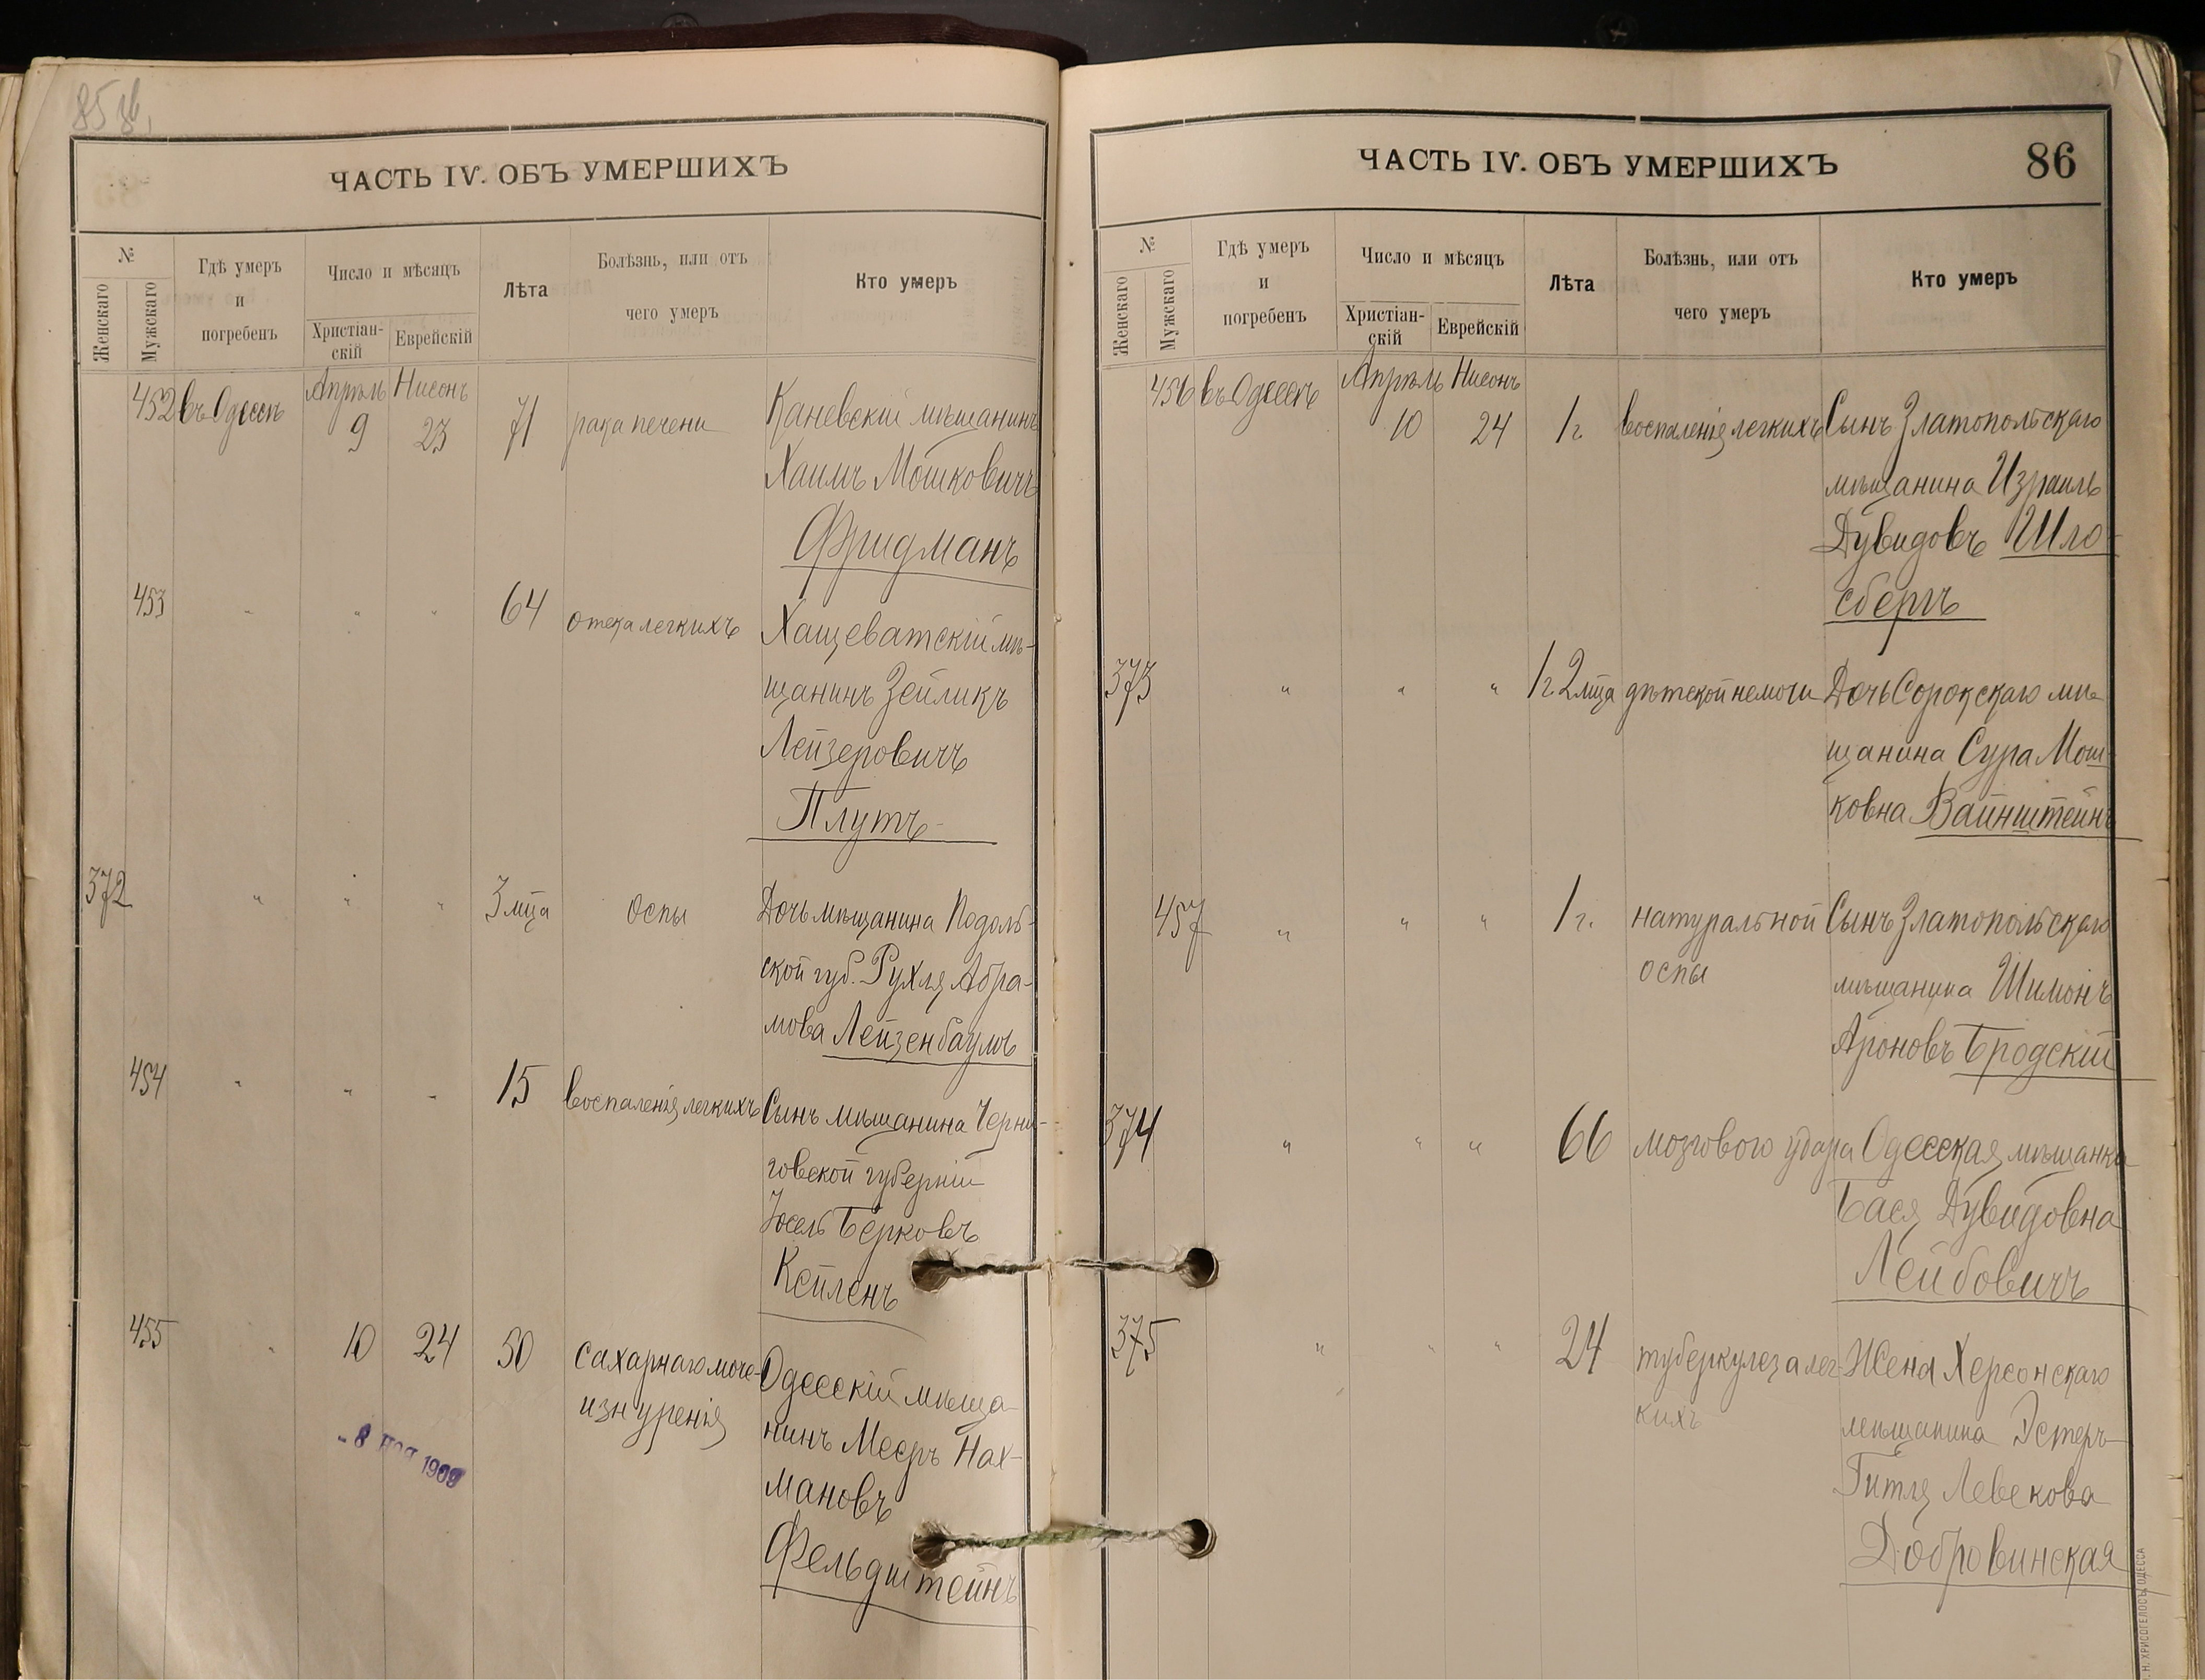 85 об.
ЧАСТЬ IV. ОБЪ УМЕРШИХЪ
№
Женскаго
Мужскаго
Гдѣ умеръ
и
погребенъ
Число и мѣсяцъ
Христіан-
скій
Еврейскій
Лѣта
Болѣзнь, или отъ
чего умеръ
Кто умеръ
452 въ Одессѣ Апрѣль 9 Нисонъ 23 71 рака печени Каневскій мѣщанинъ
Хаимъ Мошковичъ
Фридманъ
453 " " " 64 отека легкихъ Хащеватскій мѣ-
щанинъ Зейликъ
Лейзеровичъ
Плутъ
372 " " " 3 мѣца оспы Дочь мѣщанина Подоль-
ской губ. Рухля Абра-
мова Лейзенбаумъ
454 " " " 15 воспаленія легкихъ Сынъ мѣщанина Черни-
говской губерніи
Іосель Берковъ
Кейленъ
455 " 10 24 50 сахарнаго моче- Одесскій мѣща-
изнуренія нинъ Мееръ Нах-
мановъ
Фельдштейнъ
- 8 НОЯ 1909
ЧАСТЬ IV. ОБЪ УМЕРШИХЪ
86
№
Женскаго
Мужскаго
Гдѣ умеръ
и
погребенъ
Число и мѣсяцъ
Христіан-
скій
Еврейскій
Лѣта
Болѣзнь, или отъ
чего умеръ
Кто умеръ
456 въ Одессѣ Апрѣль 10 Нисонъ 24 1 г. воспаленія легкихъ Сынъ Златопольскаго
мѣщанина Израиль
Дувидовъ Шло-
сбергъ
373 " " " 1 г. 2 мѣца дѣтской немочи Дочь Сорокскаго мѣ-
щанина Сура Мош-
ковна Вайнштейнъ
457 " " " 1 г. натуральной Сынъ Златопольскаго
оспы мѣщанина Шимонъ
Ароновъ Бродскій
374 " " " 66 мозгового удара Одесская мѣщанка
Бася Дувидовна
Лейбовичъ
375 " " " 24 туберкулеза лег- Жена Херсонскаго
кихъ мѣщанина Эстеръ-
Гитля Левекова
Добровинская
Н. ХРИСОГЕЛОСЪ, ОДЕССА